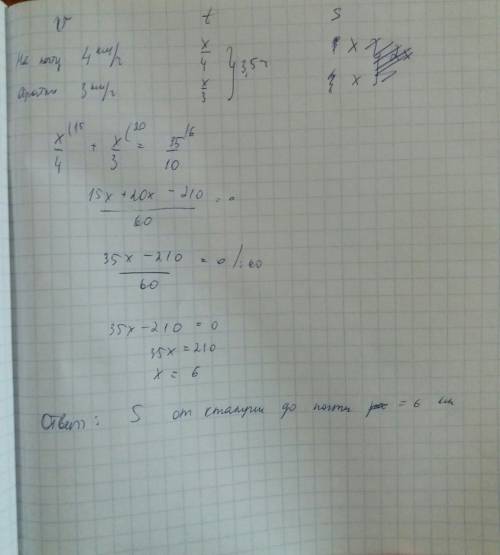 v t S
На почту 4 км/ч x/4 x
Обратно 3 км/ч x/3 } 3,5ч x
x/4 (15 + x/3 (20 = 35/10 (6
15x + 20x - 210 / 60 = 0
35x - 210 / 60 = 0 /·60
35x - 210 = 0
35x = 210
x = 6
Ответ: S от станции до почты = 6 км